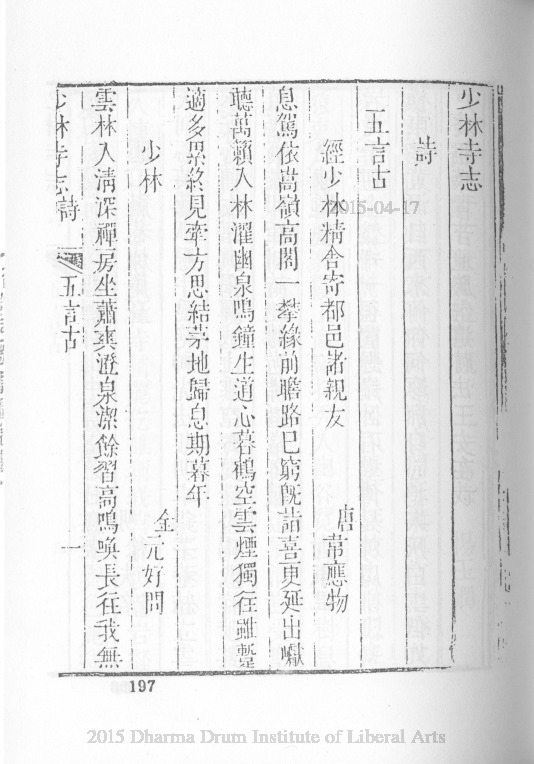 少林寺志
詩
五言古
經少林精舍寄都邑諸親友 唐韋應物
息駕依嵩嶺高閣一攀緣前瞻路已窮旣詣喜更延出巘
聽萬籟入林濯幽泉鳴鐘生道心暮鶴空雲煙獨往雖暫
適多累終見牽方思結茅地歸息期暮年
少林 金元好問
雲林入清深禪房坐蕭爽澄泉潔餘習高鳴喚長往我無
少林寺志 詩 五言古 一
2015-04-17
197
2015 Dharma Drum Institute of Liberal Arts